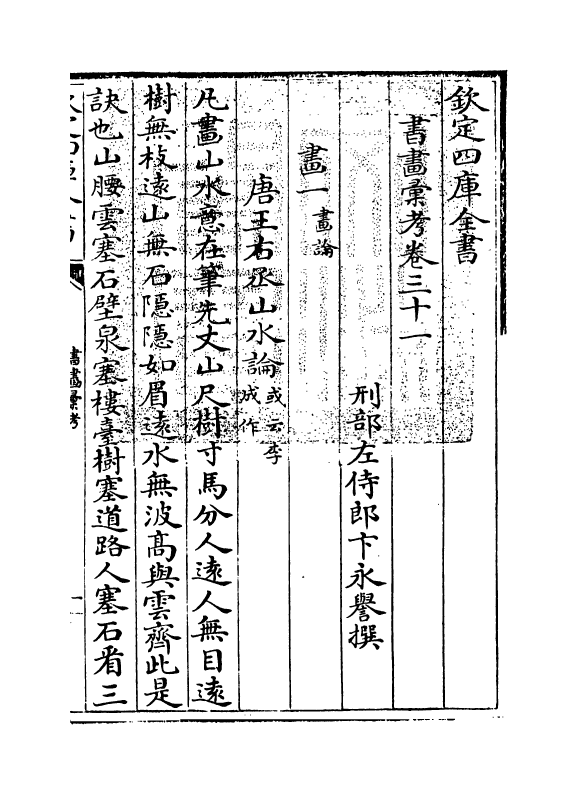 欽定四庫全書
書畫彚考卷三十一
刑部左侍郎卞永譽撰
畫一 畫論
唐王右丞山水論 或云李成作
凡畫山水意在筆先丈山尺樹寸馬分人遠人無目遠
樹無枝遠山無石隠隠如眉遠水無波髙與雲齊此是
訣也山腰雲塞石壁泉塞樓臺樹塞道路人塞石看三
書畫彚考
一